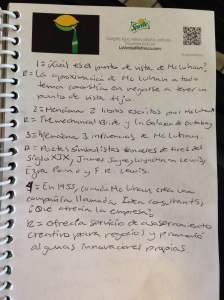 LaVerdadNosUne.com
1= ¿Cuál es el punto de vista de McLuhan?
R= La aproximación de McLuhan a todo
tema consistía en negarse a tener un
punto de vista fijo.
2= Menciona 2 libros escritos por McLuhan
R= The mechanical Bride y la Galaxia de Gutenberg
3= Menciona 3 influencias de McLuhan
R= Poetas simbolistas de fines del
siglo XIX, James Joyce,
Ezra Pound y F.R. Lewis.
4= En 1955, cuando McLuhan crea una
compañía llamada Idea consultants,
¿Qué ofrecía la empresa?
R= ofrecía servicio de asesoramiento
creativo para negocios y promovió
algunas innovaciones propias